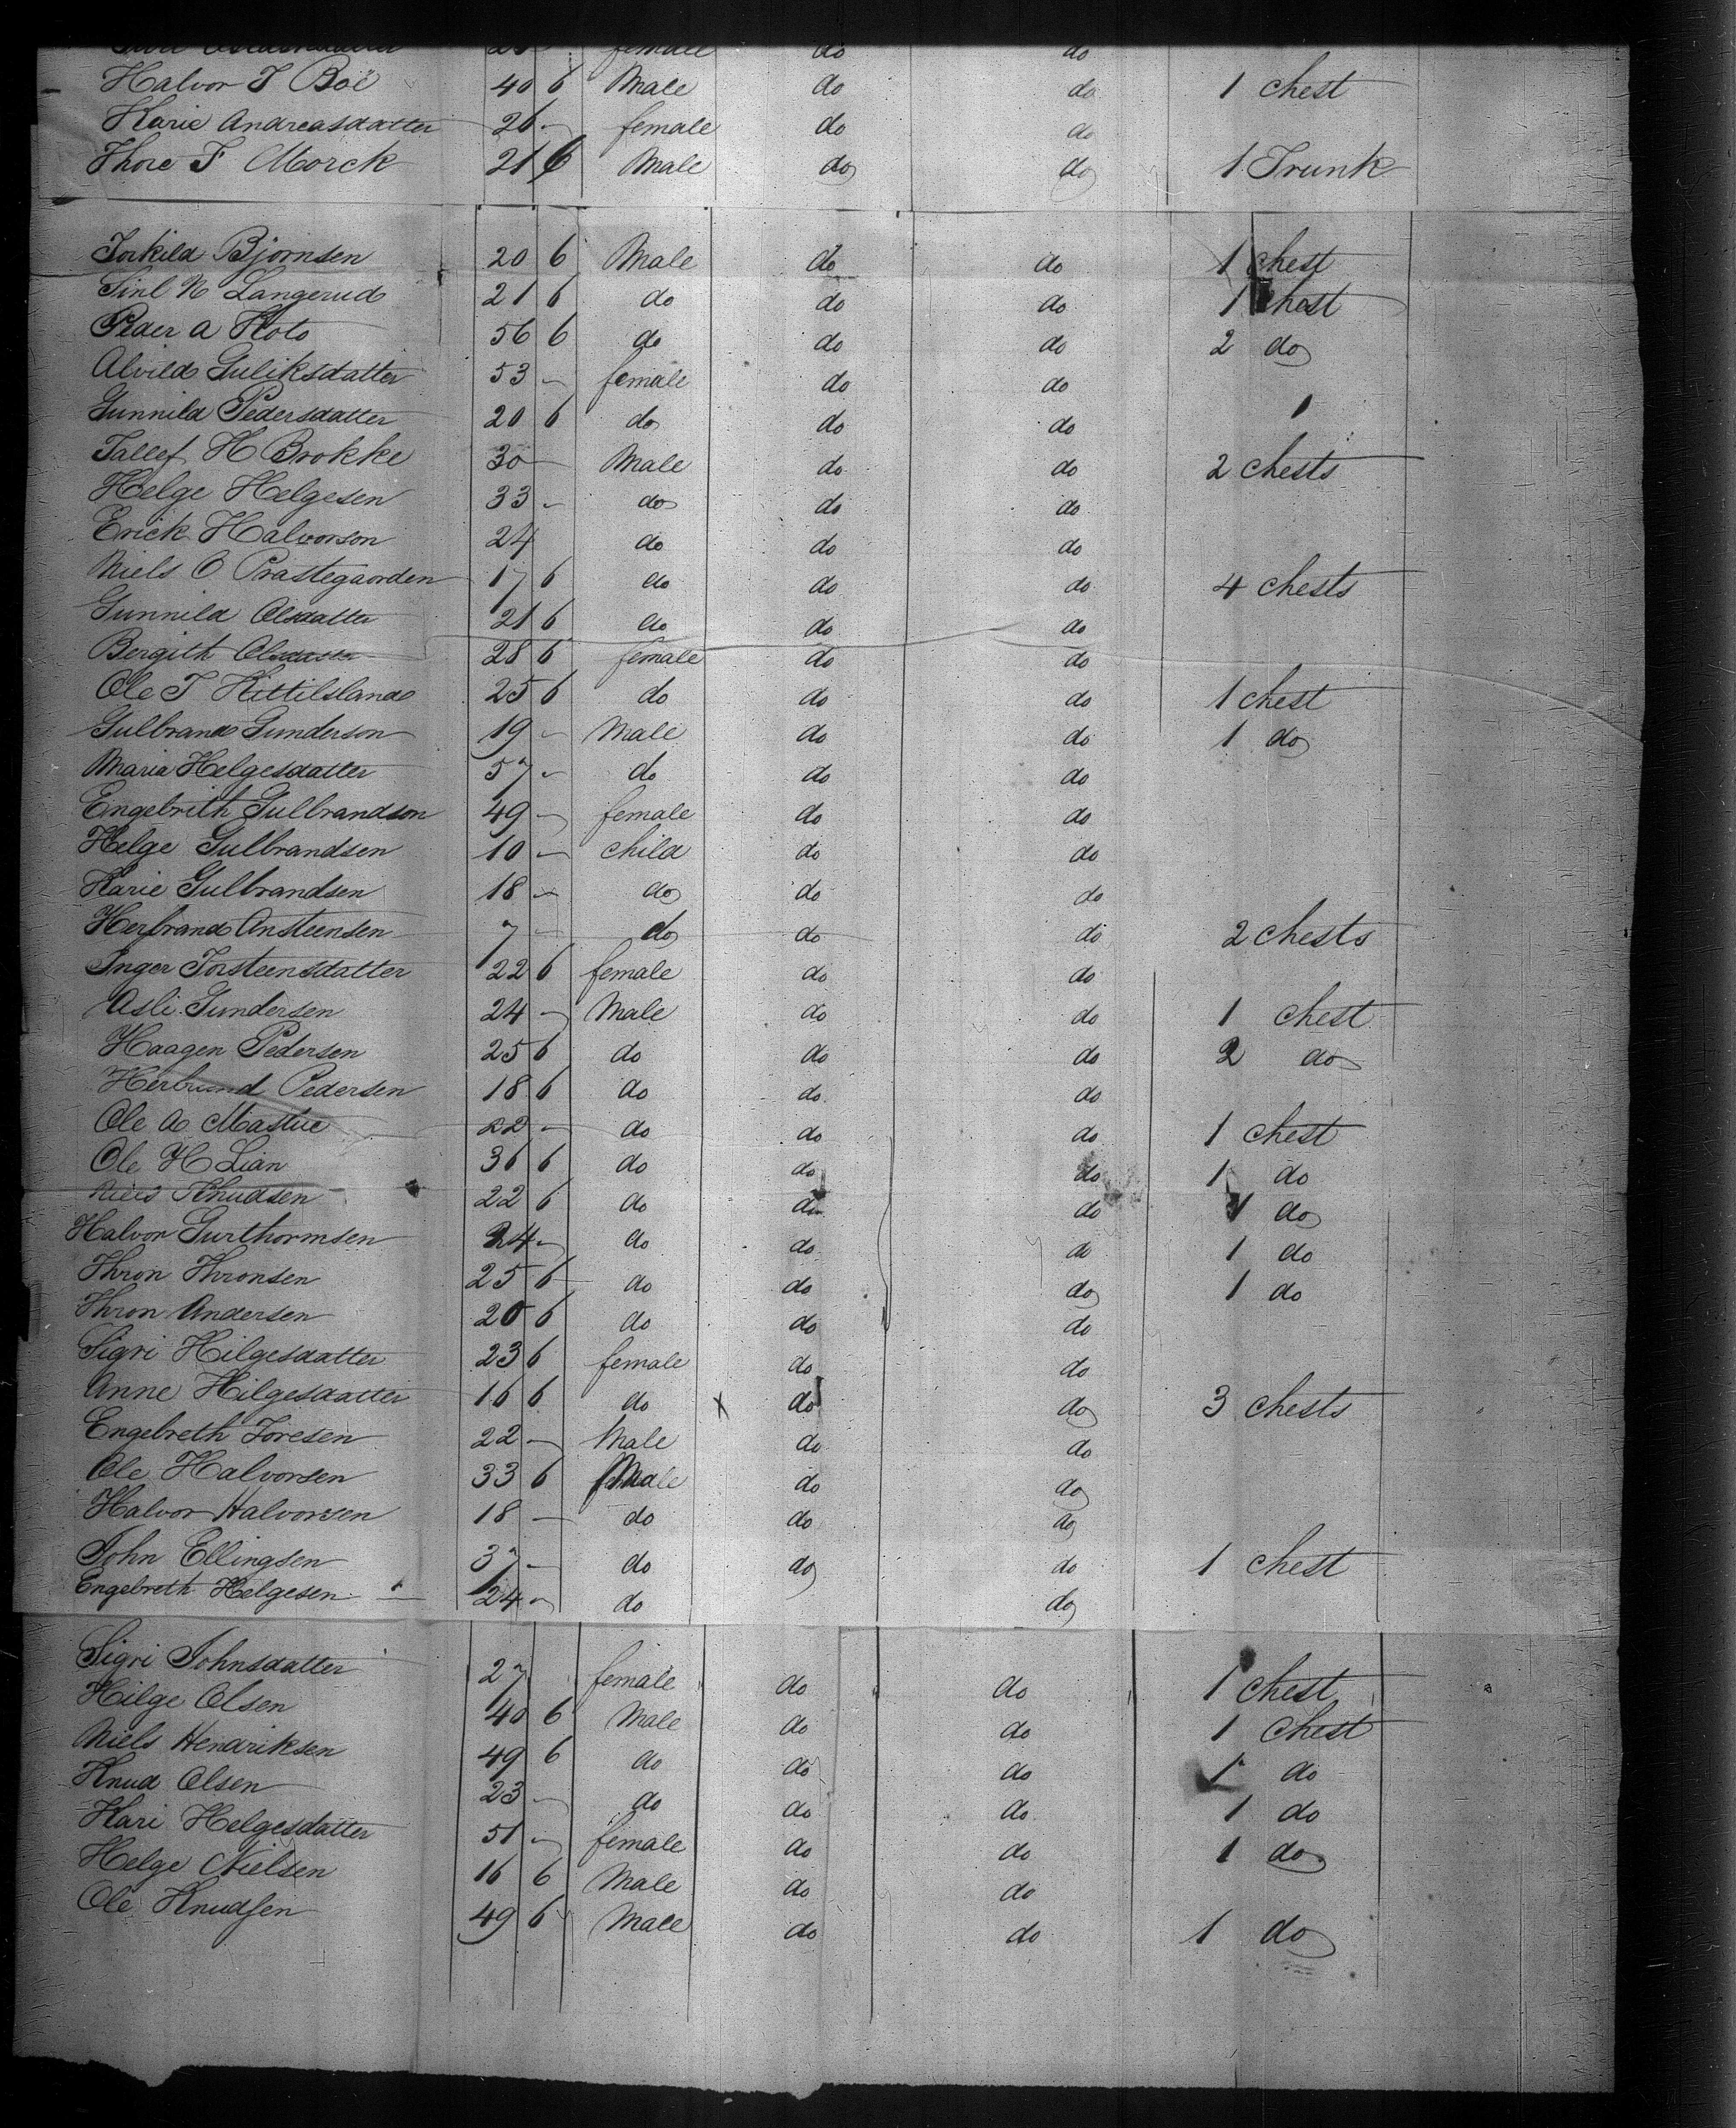 female do do
Halvor T Boe 40 6 Male do do 1 Chest
Karie Andreasdatter 26 - female do do
Thore T Morck 21 6 Male do do 1 Trunk
Torkild Bjornsen 20 6 Male do do 1 Chest
N Langerud 21 6 do do do 1 Chest
Peder A Roto 56 6 do do do 2 do
Alvild Guliksdatter 53 - female do do
Gunnild Pedersdatter 20 6 do do do 1
Tallef H Brokke 30 - Male do do 2 Chests
Helge Helgesen 33 - do do do
Erick Halvorson 24 do do do
Niels O Prastegaorden 17 6 do do do 4 Chests
Gunnild Olsdatter 21 6 do do do
Bergith Olsdatter 28 6 female do do
Ole T Kittilsland 25 6 do do do 1 Chest
Gulbrand Gunderson 19 - Male do do 1 do
Maria Helgesdatter 57 - do do do
Engebrith Gulbrandson 49 - female do do
Helge Gulbrandsen 10 - Child do do
Karie Gulbrandsen 18 - do do do
Herbrand Ansteensen 7 - do do do 2 Chests
Inger Torsteensdatter 22 6 female do do
Asli Gundersen 24 - Male do do 1 Chest
Haagen Pedersen 25 6 do do do 2 do
Herbrand Pedersen 18 6 do do do
Ole A Mastue 22 - do do do 1 Chest
Ole H Lian 36 6 do do do 1 do
Niels Knudsen 22 6 do do do 1 do
Halvor Gurthormsen 24 - do do do 1 do
Thron Thronsen 25 6 do do do 1 do
Thron Andersen 20 6 do do do
Sigri Hilgesdatter 23 6 female do do
Anne Hilgesdatter 16 6 do x do do 3 Chests
Engebreth Toresen 22 - Male do do
Ole Halvorsen 33 6 Male do do
Halvor Halvorsen 18 - do do do
John Ellingsen 37 - do do do 1 Chest
Engebreth Helgesen 24 - do do
Sigri Johnsdatter 27 female do do 1 Chest
Hilge Olsen 40 6 Male do do 1 Chest
Niels Hendriksen 49 6 do do do 1 do
Knud Olsen 23 - do do do 1 do
Kari Helgesdatter 51 - female do do 1 do
Helge Nielsen 16 6 Male do do
Ole Knudsen 49 6 Male do do 1 do